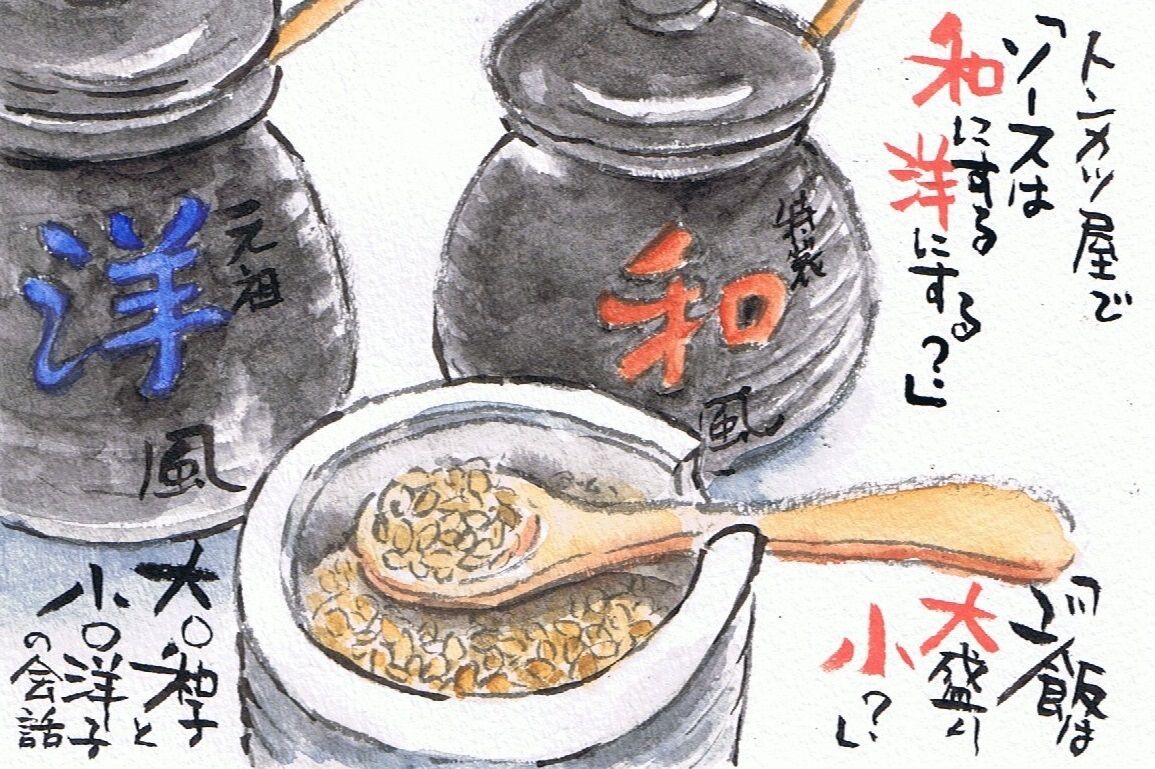 トンカツ屋で
「ソースは
和にする
洋にする?」
「ご飯は
大盛り
小?」
特製
和
風
元祖
洋
風
大〇和子と
小〇洋子
の会話